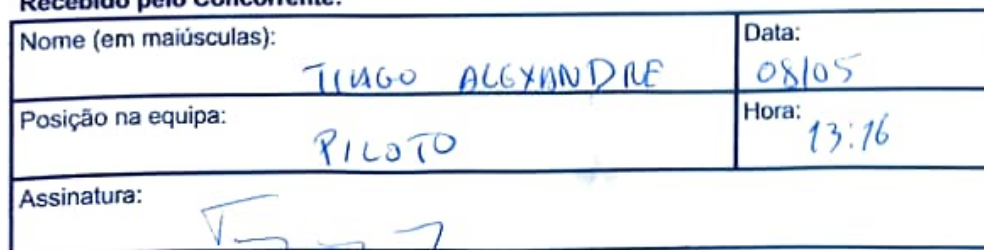 Recebido pelo Concorrente:
Nome (em maiúsculas): Data:
TIAGO ALEXANDRE 08/05
Posição na equipa: Hora:
PILOTO 13:16
Assinatura: